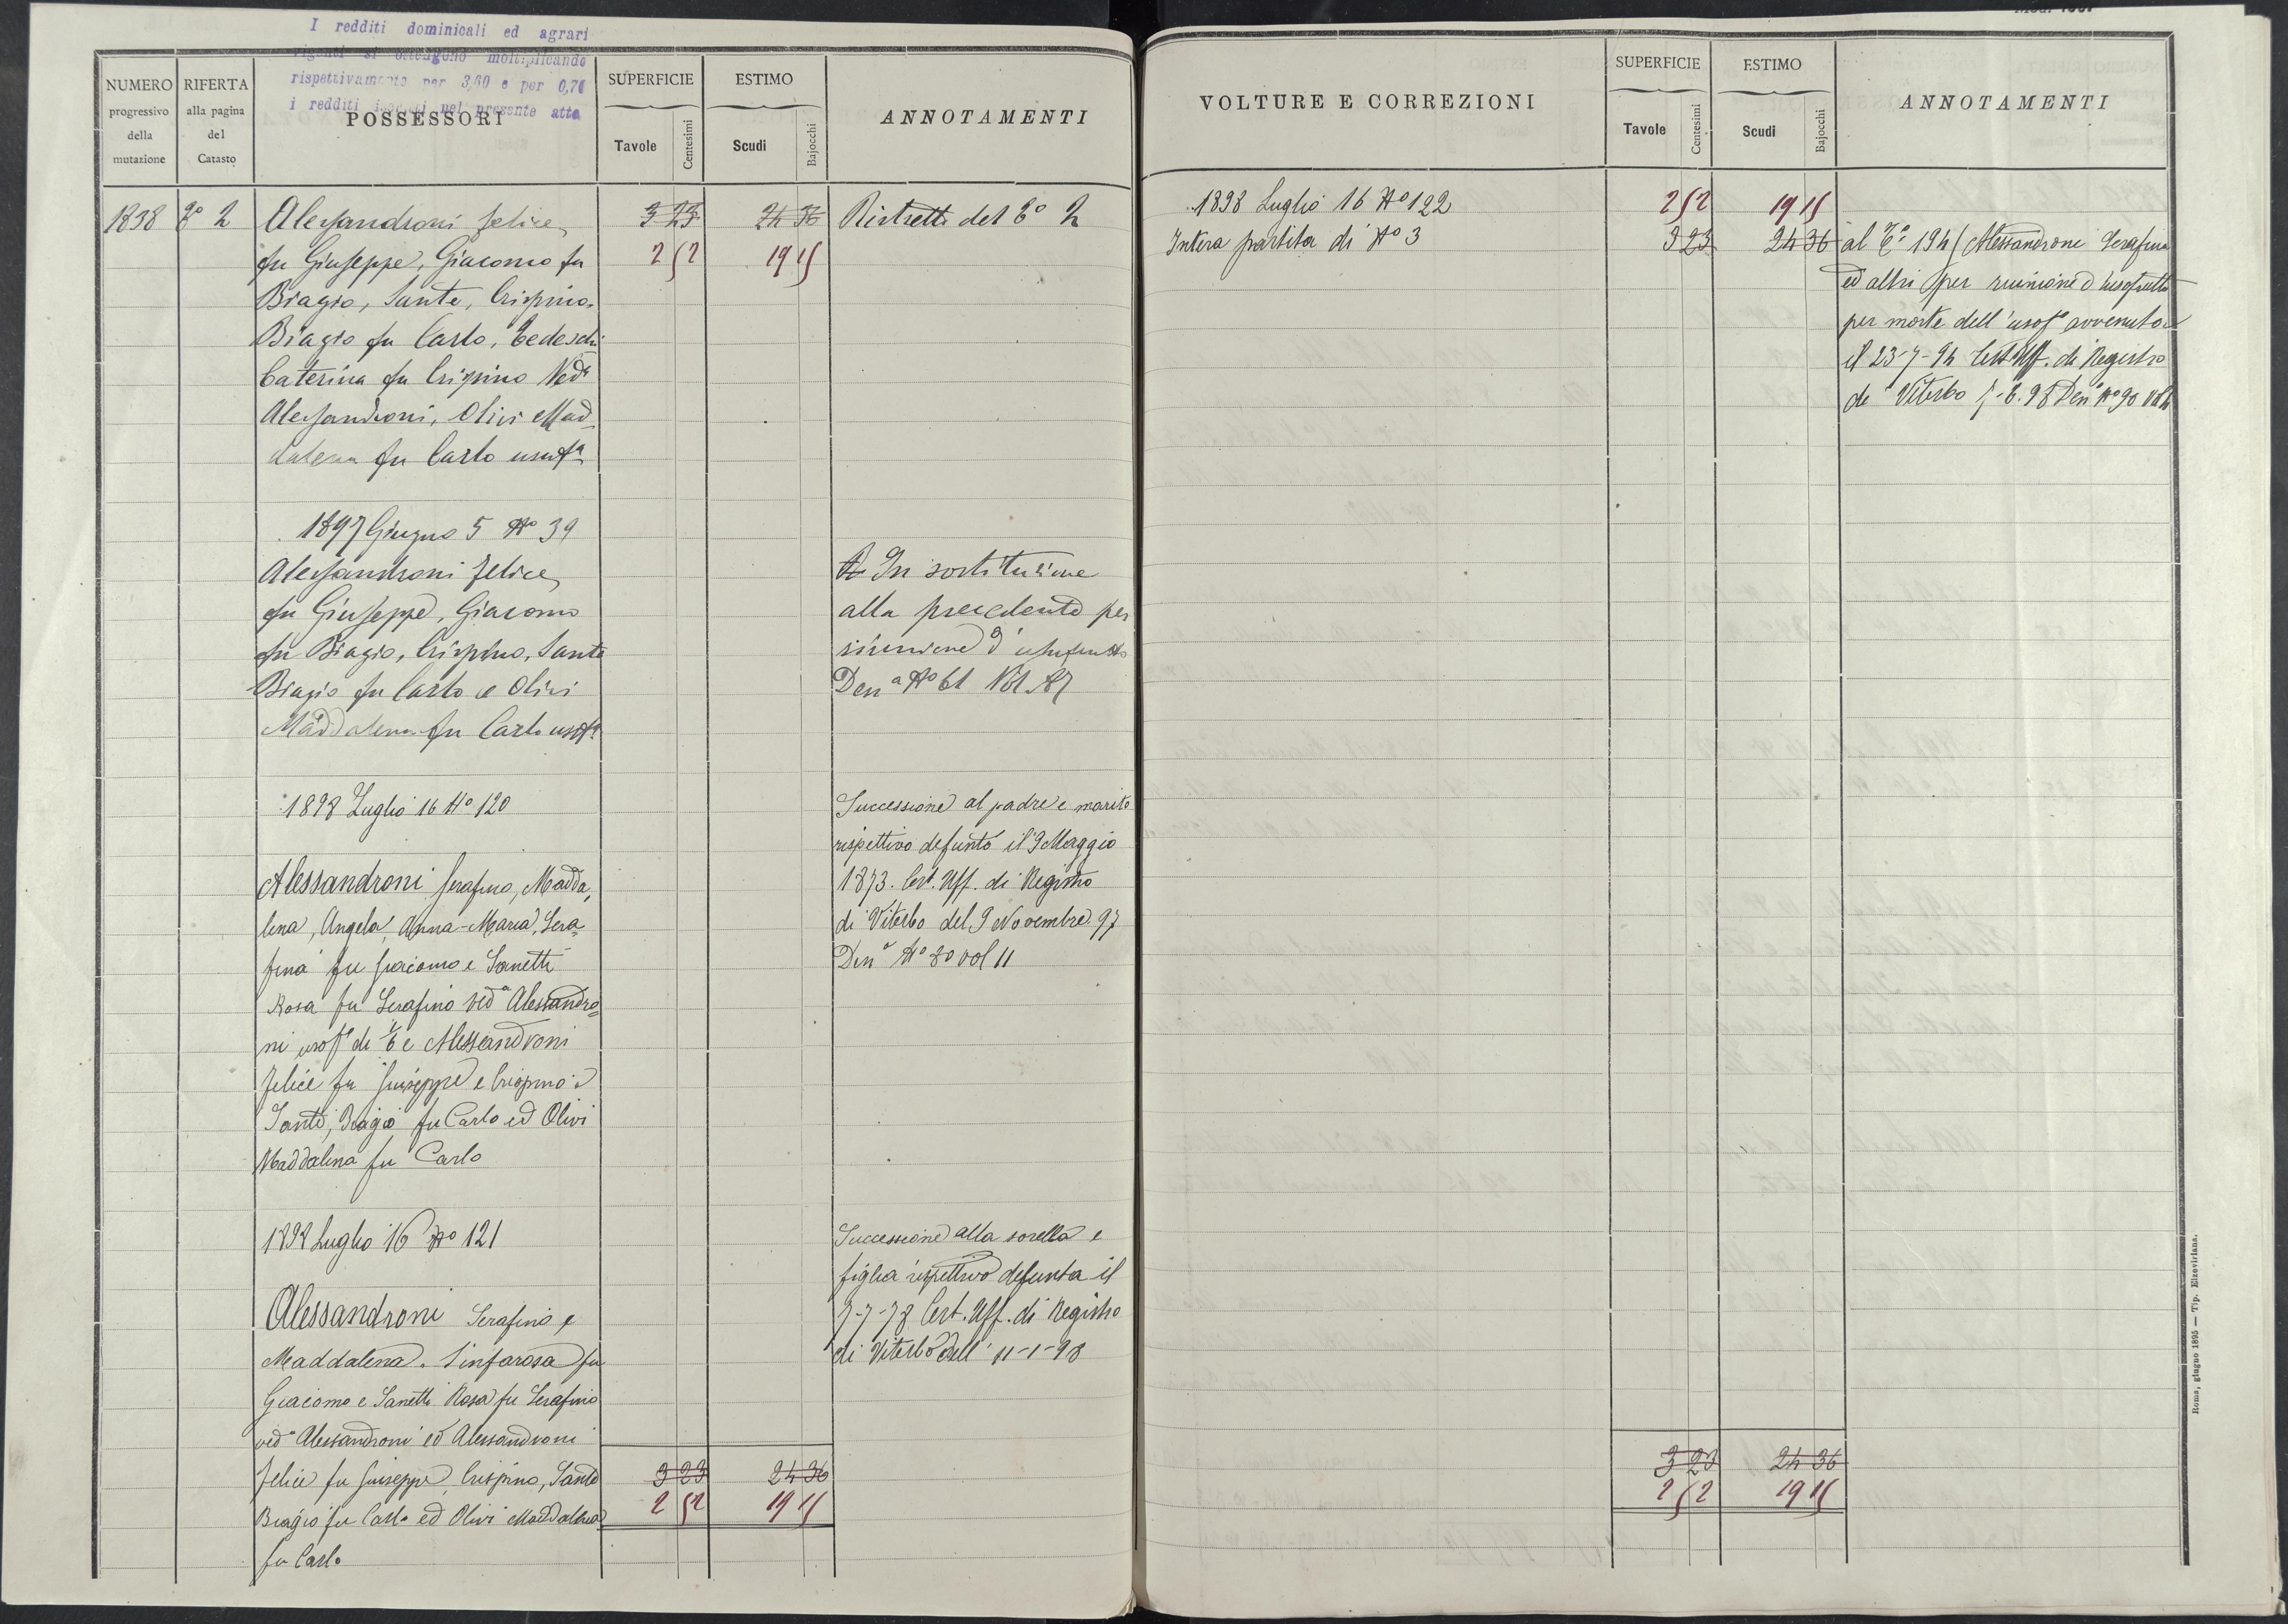 I redditi dominicali ed agrari
vigenti si ottengono moltiplicando
rispettivamente per 3,60 e per 0,70
i redditi iscritti nel presente atto
NUMERO
progressivo
della
mutazione
RIFERTA
alla pagina
del
Catasto
POSSESSORI
SUPERFICIE
Tavole
Centesimi
ESTIMO
Scudi
Bajocchi
ANNOTAMENTI
1838 To 2 Alessandroni Felice 3 23 24 36 Ristretti del To 2
fu Giuseppe, Giacomo fu 2 52 19 15
Biagio, Sante, Crispino,
Biagio fu Carlo, Tedeschi
Caterina fu Crispino Veda
Alessandroni, Olivi Mad
dalena fu Carlo usufa
1897 Giugno 5 No 39
Alessandroni Felice In sostituzione
fu Giuseppe, Giacomo alla precedente per
fu Biagio, Crispino, Sante riunione d'usufrutto
Biagio fu Carlo e Olivi Dena No 61 Vol
Maddalena fu Carlo usfa
1898 Luglio 16 No 120 Successione al padre e marito
rispettivo defunto il 9 Maggio
Alessandroni Serafino, Madda 1873. Cert. Uff. di Registro
lena, Angela, Anna-Maria, Sera di Viterbo del 9 Novembre 97
fina fu Giacomo e Sanetti Dena No 80 vol 11
Rosa fu Serafino veda Alessandro=
ni usofa di 1/6 e Alessandroni
Felice fu Giuseppe e Crispino e
Sante, Biagio fu Carlo ed Olivi
Maddalena fu Carlo
1898 Luglio 16 No 121 Successione alla sorella e
figlia rispettivo defunta il
Alessandroni Serafino e 7-7-78 Cert. Uff. di Registro
Maddalena. Sinfarosa fu di Viterbo dell' 11-1-98
Giacomo e Sanetti Rosa fu Serafino
veda Alessandroni ed Alessandroni
Felice fu Giuseppe, Crispino, Sante 3 23 24 36
Biagio fu Carlo ed Olivi Maddalena 2 52 19 15
fu Carlo
VOLTURE E CORREZIONI
SUPERFICIE
Tavole
Centesimi
ESTIMO
Scudi
Bajocchi
ANNOTAMENTI
1898 Luglio 16 No 122 2 52 19 15
Intera partita di No 3 3 23 24 36 al To 194 (Alessandroni Serafino
ed altri per riunione d'usofrutto
per morte dell'usofa avvenuto
il 23-7-94 Cert Uff. di Registro
di Viterbo Dena No 90 Vol
3 23 24 36
2 52 19 15
Roma, giugno 1895 — Tip. Elzeviriana.